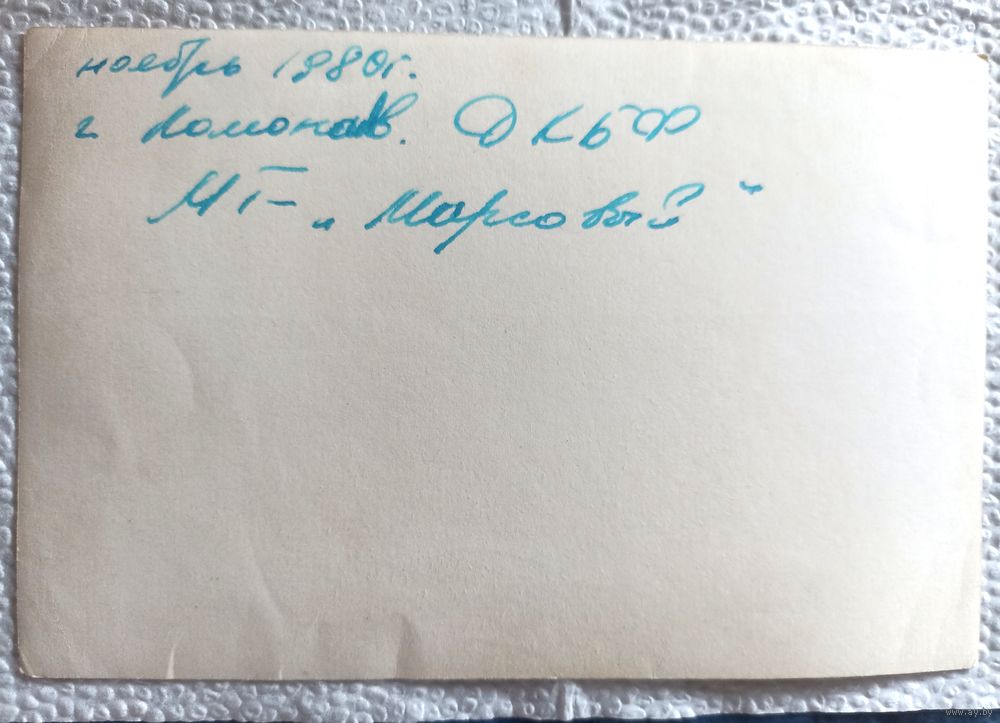 ноябрь 1980г.
г Ломонов. ДКБФ
МТ- „Марсовый"
www.ay.by